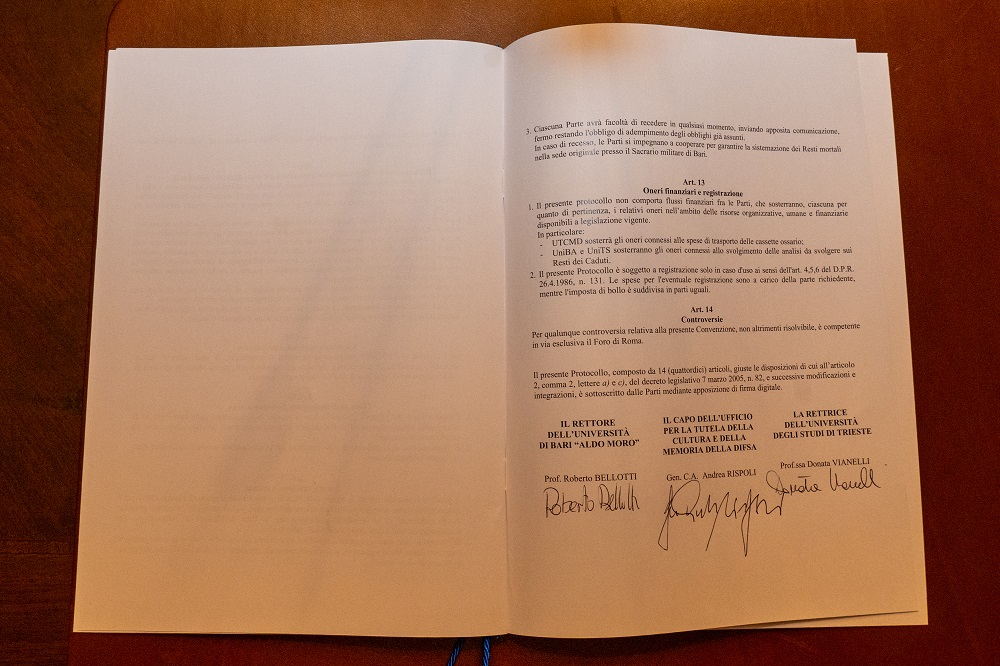 3. Ciascuna Parte avrà facoltà di recedere in qualsiasi momento, inviando apposita comunicazione,
fermo restando l'obbligo di adempimento degli obblighi già assunti.
In caso di recesso, le Parti si impegnano a cooperare per garantire la sistemazione dei Resti mortali
nella sede originale presso il Sacrario militare di Bari.
Art. 13
Oneri finanziari e registrazione
1. Il presente protocollo non comporta flussi finanziari fra le Parti, che sosterranno, ciascuna per
quanto di pertinenza, i relativi oneri nell'ambito delle risorse organizzative, umane e finanziarie
disponibili a legislazione vigente.
In particolare:
- UTCMD sosterrà gli oneri connessi alle spese di trasporto delle cassette ossario;
- UniBA e UniTS sosterranno gli oneri connessi allo svolgimento delle analisi da svolgere sui
Resti dei Caduti.
2. Il presente Protocollo è soggetto a registrazione solo in caso d'uso ai sensi dell'art. 4,5,6 del D.P.R.
26.4.1986, n. 131. Le spese per l'eventuale registrazione sono a carico della parte richiedente,
mentre l'imposta di bollo è suddivisa in parti uguali.
Art. 14
Controversie
Per qualunque controversia relativa alla presente Convenzione, non altrimenti risolvibile, è competente
in via esclusiva il Foro di Roma.
Il presente Protocollo, composto da 14 (quattordici) articoli, giuste le disposizioni di cui all'articolo
2, comma 2, lettere a) e c), del decreto legislativo 7 marzo 2005, n. 82, e successive modificazioni e
integrazioni, è sottoscritto dalle Parti mediante apposizione di firma digitale.
IL RETTORE
DELL'UNIVERSITÀ
DI BARI “ALDO MORO”
Prof. Roberto BELLOTTI
Roberto Bellotti
IL CAPO DELL'UFFICIO
PER LA TUTELA DELLA
CULTURA E DELLA
MEMORIA DELLA DIFSA
Gen. C.A. Andrea RISPOLI
LA RETTRICE
DELL'UNIVERSITÀ
DEGLI STUDI DI TRIESTE
Prof.ssa Donata VIANELLI
Donata Vianelli